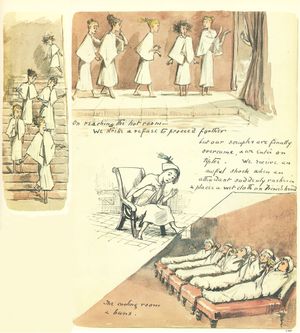 On reaching the hot room—
We strike & refuse to proceed further
but our scruples are finally
overcome, and enter on
tiptoe. We receive an
awful shock when an
attendant suddenly rushes in
& places a wet cloth on
The cooling room
& buns.